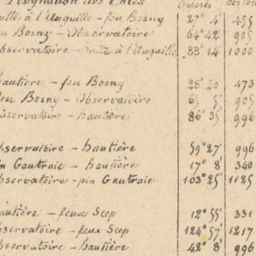 Désignation des Côtés
à l'Anguille - feu Bosny 27° 4' 495
feu Bosny - Observatoire 64° 42' 905
Observatoire - à l'Anguille 88° 14' 1000
hautière - feu Bosny 26° 20' 473
feu Bosny - Observatoire 905
Observatoire - hautière 86° 35' 996
Observatoire - hautière 59° 27' 996
pin Gautraie - hautière 17° 8' 340
Observatoire - pin Gautraie 103° 25' 1125
hautière - feux Scep 12° 55' 331
Observatoire - feux Scep 124° 57' 1217
Observatoire - hautière 42° 8' 996